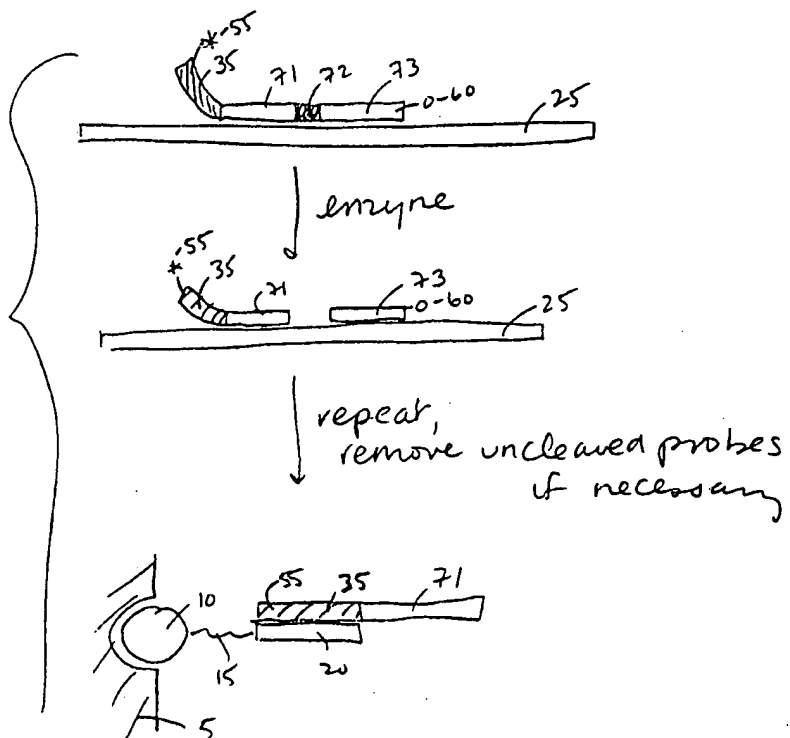 *-55
35
71 72 73
0-60
25
enzyne
*-55
35
71
73
0-60
25
repeat,
remove uncleaved probes
if necessary
55 35 71
10
15
20
5